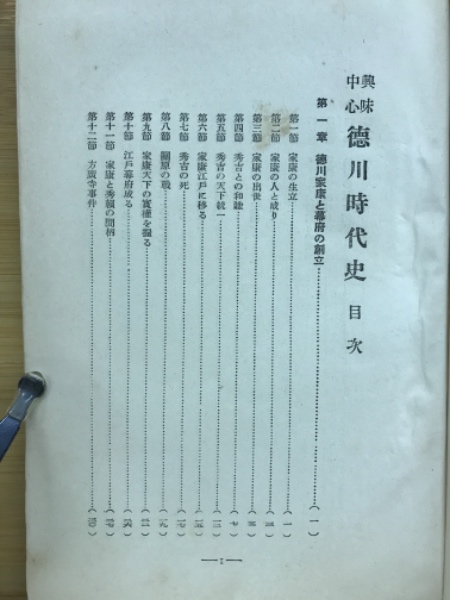 興味中心 德川時代史 目次
第一章 德川家康と幕府の創立……(一)
第一節 家康の生立……(一)
第二節 家康の人と成り
第三節 家康の出世
第四節 秀吉との和睦……(七)
第五節 秀吉の天下統一
第六節 家康江戸に移る
第七節 秀吉の死
第八節 關原の戰
第九節 家康天下の實權を握る
第十節 江戸幕府成る
第十一節 家康と秀賴の間柄
第十二節 方廣寺事件
— 1 —